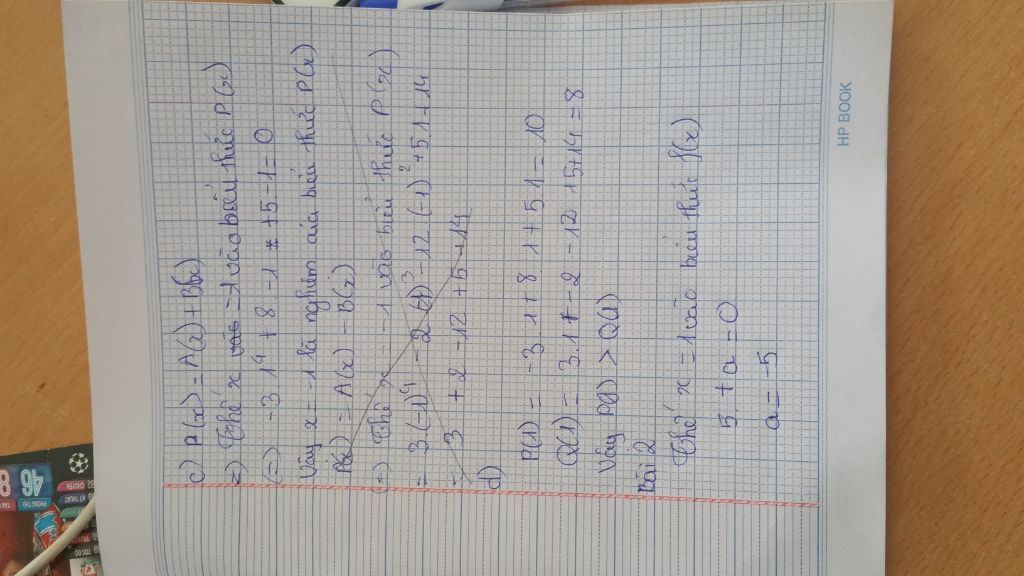 c) P(x) = A(x) + B(x)
=) Thế x vào = -1 vào biểu thức P(x)
(=) -3.1⁴ + 8 . -1 + 5 - 1 = 0
Vậy x = -1 là nghiệm của biểu thức P(x)
P(x) = A(x) - B(x)
(=) Thế x = -1 vào biểu thức P(x)
= 3.(-1)⁴ - 2 (-1)³ - 12 (-1)² + 51 + 14
= 3 + 2 - 12 + 5 + 14
d)
P(1) = -3 . 1 + 8 1 + 5 1 = 10
Q(1) = 3.1 - 2 - 12 15 + 14 = 8
Vậy P(1) > Q(1)
Bài 2
Thế x = 1 vào biểu thức f(x)
5 + a = 0
a = -5
HP BOOK
46
8
PHÒNG THỦ
KỸ THUẬT
TỐC ĐỘ